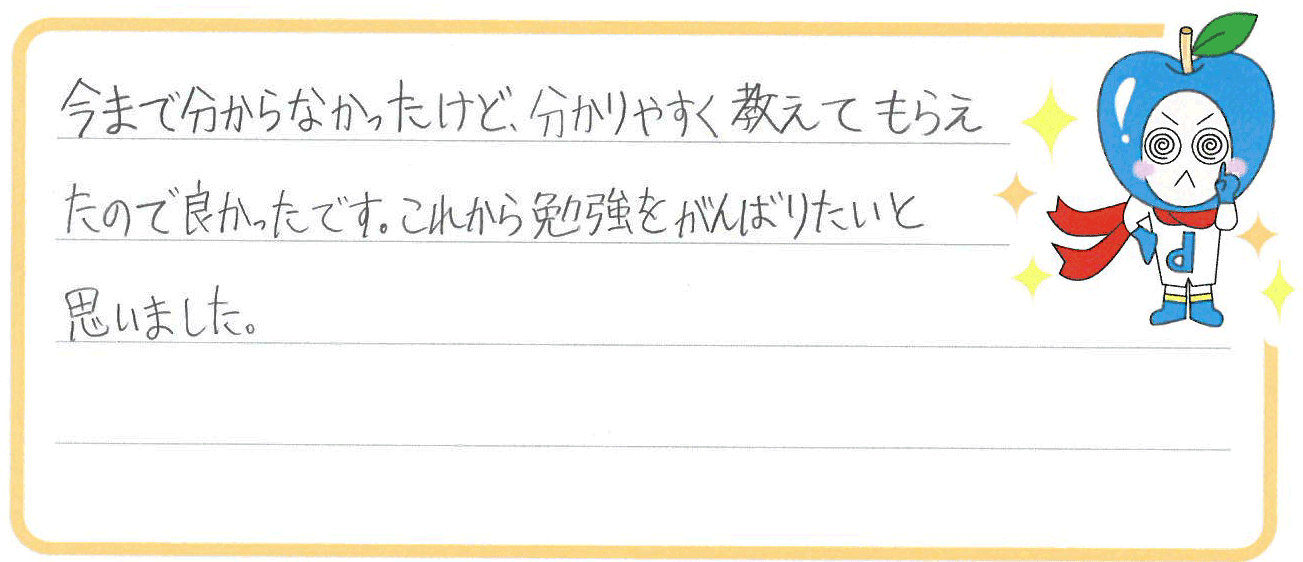 今まで分からなかったけど、分かりやすく教えてもらえ
たので良かったです。これから勉強をがんばりたいと
思いました。
d